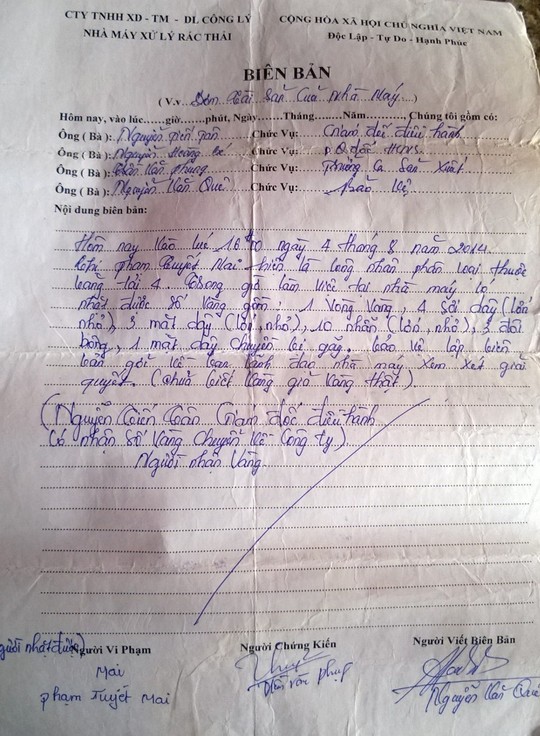 CTY TNHH XD - TM - DL CÔNG LÝ
NHÀ MÁY XỬ LÝ RÁC THẢI
CỘNG HÒA XÃ HỘI CHỦ NGHĨA VIỆT NAM
Độc Lập - Tự Do - Hạnh Phúc
BIÊN BẢN
( V.v Đếm tài sản của nhà máy )
Hôm nay, vào lúc......giờ......phút, Ngày......Tháng......Năm......, Chúng tôi gồm có:
Ông ( Bà ): Nguyễn tiến toàn Chức Vụ: Giám đốc điều hành
Ông ( Bà ): Nguyễn Hoàng bé Chức Vụ: P.Q đốc HCNS
Ông ( Bà ): Trần Văn Phụng Chức Vụ: Trưởng Ca Sản Xuất
Ông ( Bà ): Nguyễn Văn Quí Chức Vụ: Bảo Vệ
Nội dung biên bản:
Hôm nay vào lúc 16 10 ngày 4 tháng 8 năm 2014
chị phạm tuyết Mai hiện là công nhân phân loại thuộc
băng tải 4. trong giờ làm việc tại nhà máy có
nhặt được số vàng gồm, 1 vòng vàng, 4 sợi dây (lớn
nhỏ), 3 mặt dây (lớn, nhỏ), 10 nhẫn (lớn, nhỏ), 3 đôi
bông, 1 mặt dây chuyền bị gãy. bảo vệ lập biên
bản gởi về ban lãnh đạo nhà máy xem xét giải
quyết. (chưa biết vàng giả vàng thật).
(Nguyễn tiến toàn Giám đốc điều hành
có nhận số vàng chuyển về công ty)
Người nhận vàng
người nhặt được)
Người Vi Phạm Người Chứng Kiến Người Viết Biên Bản
Mai
phạm Tuyết Mai
Trần văn phụng
Nguyễn Văn Quí